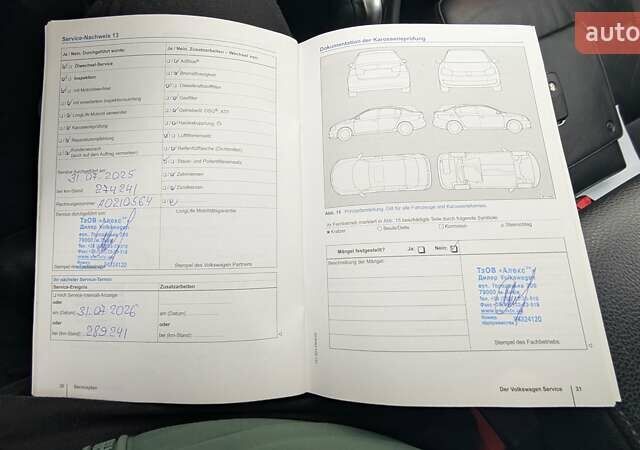 auto
Service-Nachweis 13
Ja / Nein, Durchgeführt wurde:
Ja / Nein, Zusatzarbeiten – Wechsel von:
Ölwechsel-Service
AdBlue®
Inspektion
Bremsflüssigkeit
mit Motorölwechsel
Dieselkraftstofffilter
mit erweitertem Inspektionsumfang
Gasfilter
LongLife Motoröl verwendet
Getriebeöl: DSG®, ATF
Karosserieprüfung
Haldexkupplung, Öl
Reparaturempfehlung
Luftfiltereinsatz
Kundenwunsch
(auch auf den Auftrag verweisen)
Reifenfüllflasche (Dichtmittel)
Staub- und Pollenfiltereinsatz
Service durchgeführt am:
31.07.2025
Zahnriemen
bei km-Stand: 274241
Zündkerzen
Rechnungsnummer: A0210564
Service durchgeführt von:
LongLife Mobilitätsgarantie
ТзОВ «Алекс»
Дилер Volkswagen
79000 м.
Stempel des Volkswagen Partners
Ihr nächster Service-Termin:
Service-Ereignis
Zusatzarbeiten
nach Service-Intervall-Anzeige
oder
am (Datum) 31.07.2026
am (Datum)
oder
oder
bei (km-Stand): 289241
bei (km-Stand):
30 Serviceplan
Dokumentation der Karosserieprüfung
Abb. 15 Prinzipdarstellung: Gilt für alle Fahrzeuge und Karosserieformen.
Im Fachbetrieb markiert in Abb. 15 beschädigte Teile durch folgende Symbole:
Kratzer
Beule/Delle
Korrosion
Steinschlag
Mängel festgestellt? Ja: Nein:
Beschreibung der Mängel:
ТзОВ «Алекс»
Дилер Volkswagen
79000 м.
Номер
підприємства UKR24120
Stempel des Fachbetriebs
Der Volkswagen Service 31